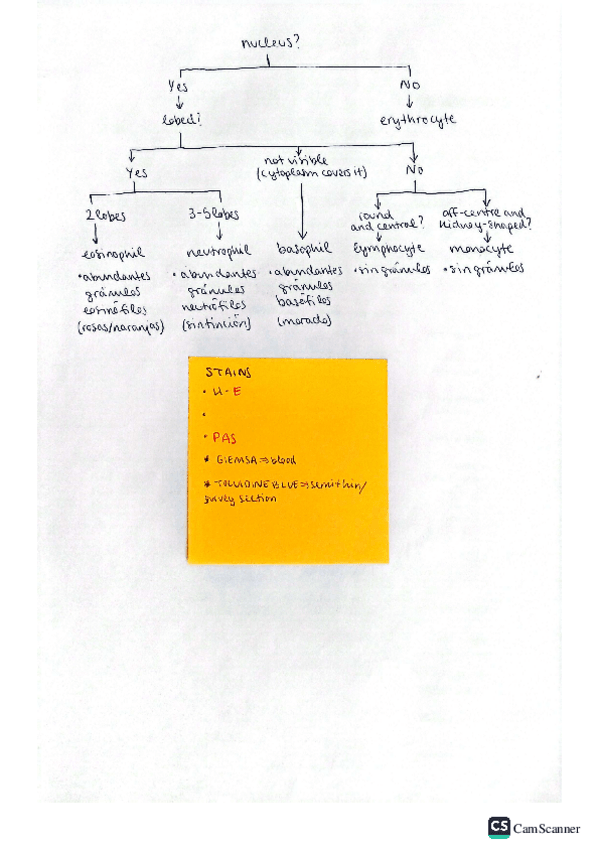 nucleus?
Yes
No
lobed?
erythrocyte
Yes
not visible
(cytoplasm covers it)
No
2 lobes
3-5 lobes
round
and central?
off-centre and
kidney-shaped?
eosinophil
• abundantes
gránulos
eosinófilos
(rosas/naranjas)
neutrophil
• abundantes
gránulos
neutrófilos
(sin tinción)
basophil
• abundantes
gránulos
basófilos
(morado)
lymphocyte
• sin gránulos
monocyte
• sin gránulos
STAINS
• H-E
•
• PAS
* GIEMSA ⇒ blood
* TOLUIDINE BLUE ⇒ semithin/
survey section
CS CamScanner